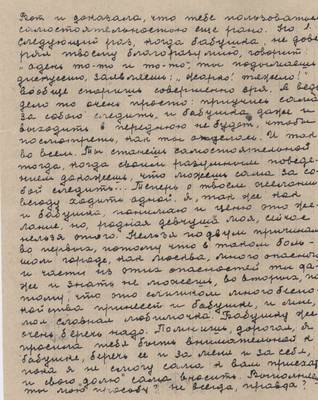 Вот и доказала, что тебе пользоваться
самостоятельностью еще рано. Но в
следующий раз, когда бабушка, не дове-
ряя твоему благоразумию, говорит:
- одень то-то и то-то, ты поднимаешь
дискуссию, заявляешь: „Жарко! тяжело!"
Вообще споришь совершенно зря. А ведь
дело-то очень просто: приучись сама
за собою следить, и бабушка даже и
выходить в переднюю не будет, чтобы
посмотреть, как ты оделась. И так
во всем. Ты станешь самостоятельной
тогда, когда своим разумным поведе-
нием докажешь, что можешь сама за со-
бой следить... Теперь о твоем желании
всюду ходить одной. Я, так же как
и бабушка, понимаю и ценю это же-
лание, но, родная девчушка моя, сейчас
нельзя этого. Нельзя по двум причинам:
во-первых, потому что в таком боль-
шом городе, как Москва, много опасностей
и части из этих опасностей ты да-
же и знать не можешь, во-вторых, по-
тому, что это слишком много беспо-
койства принесет и бабушке, и мне,
моя славная любимочка. Бабушку же
очень беречь надо. Помнишь, дорогая, я
просила тебя быть внимательной к
бабушке, беречь ее и за меня и за себя,
пока я не смогу сама к вам приехать
и свою „долю" сама вносить. Выполняешь
ты мою просьбу? Не всегда, правда?